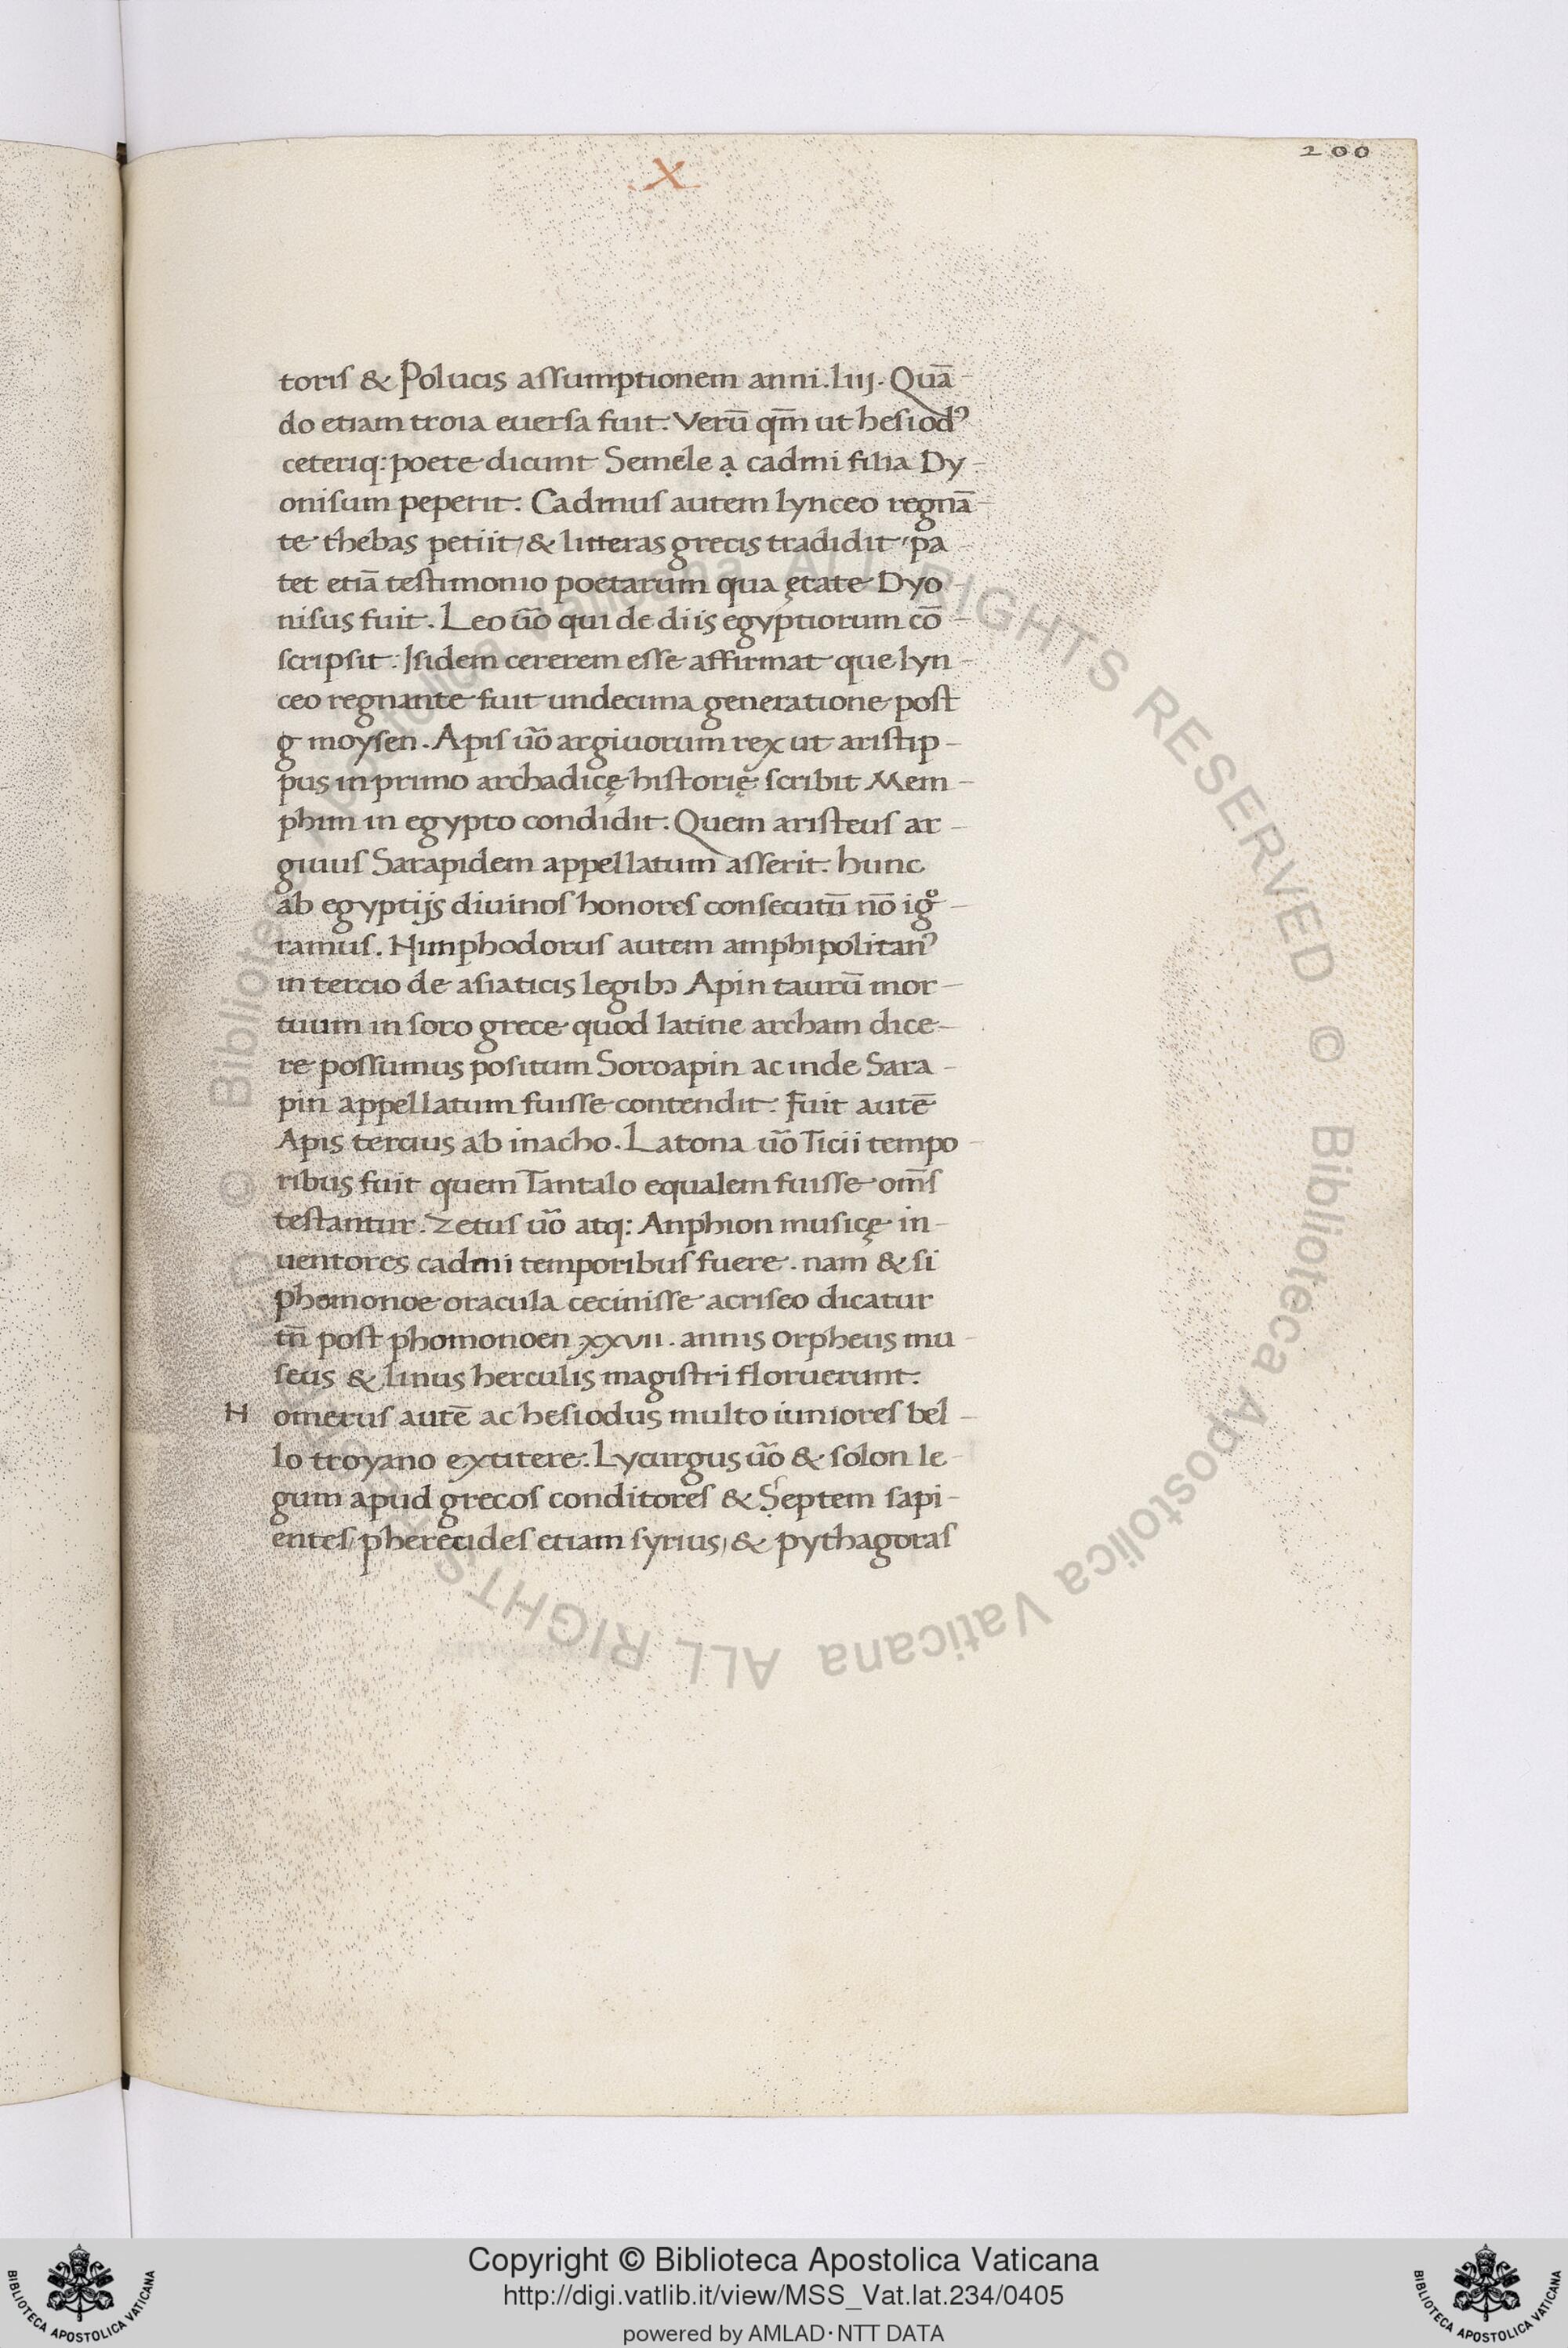 X
200
toris & Polucis assumptionem anni. liij. Quā
do etiam troia euersa fuit. Verū qm̄ ut hesiodꝰ
ceteriq: poete dicunt Semele ạ cadmi filia Dy-
onisum peperit. Cadmus autem lynceo regnā-
te thebas petiit, & litteras grecis tradidit, pa-
tet etiā testimonio poetarum qua ętate Dyo-
nisus fuit. Leo ūo qui de diis egyptiorum cō-
scripsit. Isidem cererem esse affirmat que lyn-
ceo regnante fuit undecima generatione post
g moysen. Apis ūo argiuorum rex ut aristip-
pus in primo archadicę historię scribit Mem-
phim in egypto condidit. Quem aristeus ar-
giuus Sarapidem appellatum asserit. hunc
ab egyptijs diuinos honores consecutū nō igͦ-
ramus. Nimphodorus autem amphipolitanꝰ
in tercio de asiaticis legibꝫ Apin taurū mor-
tuum in soro grece quod latine archam dice-
re possumus positum Soroapin ac inde Sara-
pin appellatum fuisse contendit. Fuit autē
Apis tercius ab inacho. Latona ūo Ticii tempo-
ribus fuit quem Tantalo equalem fuisse om̄s
testantur. Zetus ūo atq: Anphion musicę in-
uentores cadmi temporibus fuere. nam & si
phomonoe oracula cecinisse acriseo dicatur
tn̄ post phomonoen xxvii. annis orpheus mu-
seus & linus herculis magistri floruerunt.
H omerus autē ac hesiodus multo iuniores bel-
lo troyano extitere. Lycurgus ūo & solon le-
gum apud grecos conditores & Septem sapi-
entes, pherecides etiam syrius, & pythagoras
© Biblioteca Apostolica Vaticana ALL RIGHTS RESERVED © Biblioteca Apostolica Vaticana ALL RIGHTS RESERVED
Copyright © Biblioteca Apostolica Vaticana
http://digi.vatlib.it/view/MSS_Vat.lat.234/0405
powered by AMLAD·NTT DATA
BIBLIOTECA APOSTOLICA VATICANA
BIBLIOTECA APOSTOLICA VATICANA